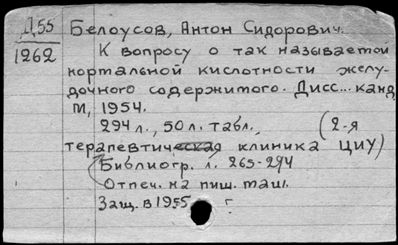 Д55 Белоусов, Антон Сидорович.
1262 К вопросу о так называемой
нормальной кислотности желу-
дочного содержимого. Дисс... канд
М, 1954.
294 л., 50 л. табл., (2-я
терапевтическая клиника ЦИУ)
Библиогр. л. 265-294
Отпеч. на пиш. маш.
Защ. в 1955 г.